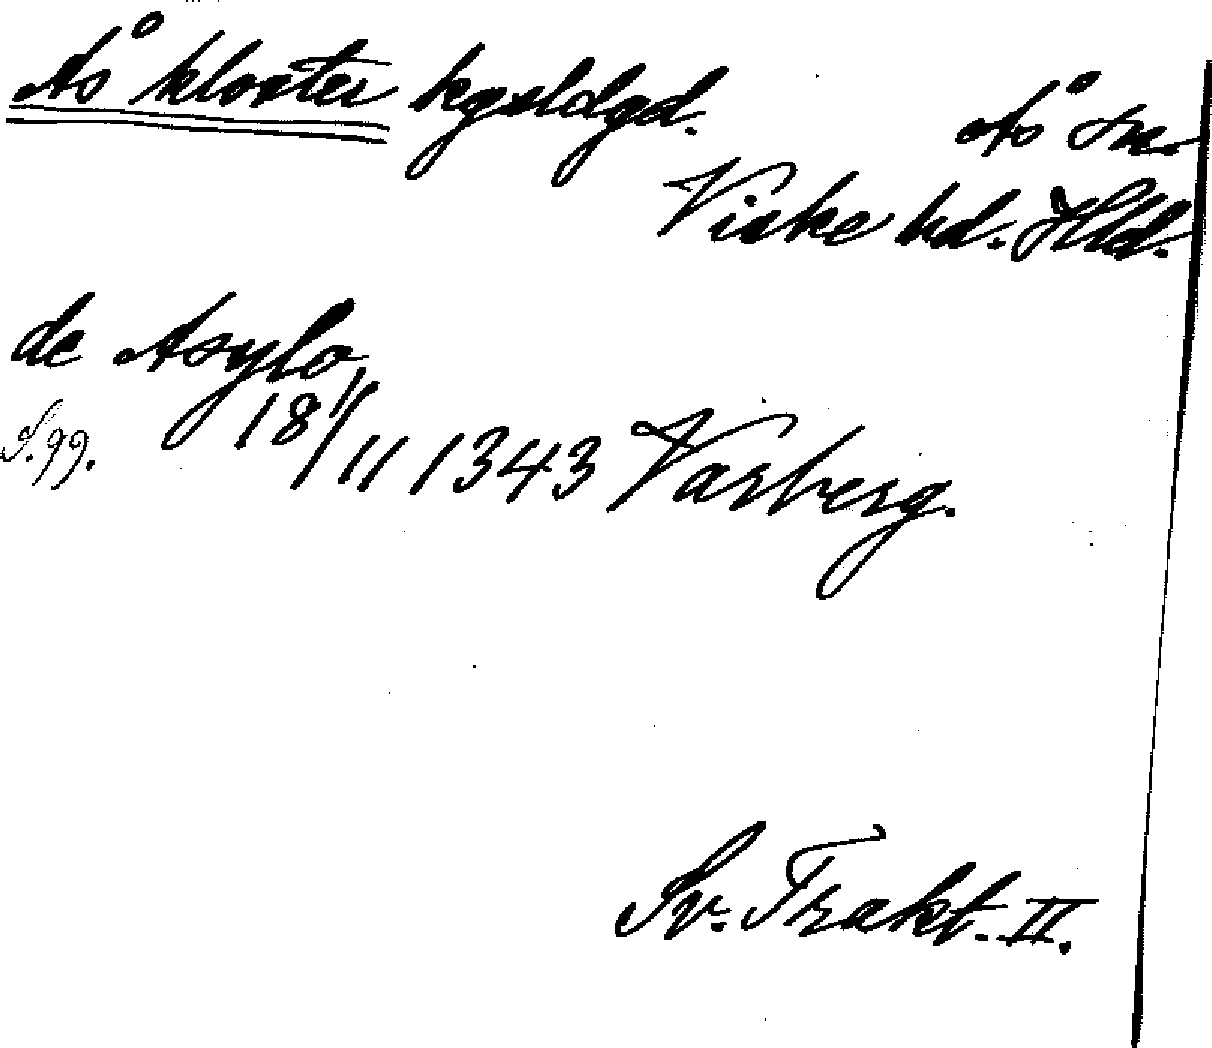 Ås kloster kgsldgd.
Ås sn.
Viske hd. Hld.
de Asylo
S. 99.
18/11 1343 Varberg.
Sv. Trakt. II.